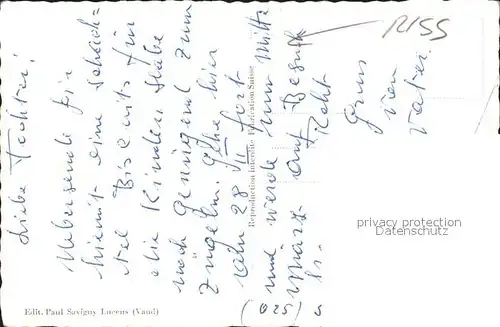 Liebe Tochter!
Übersende Dir
hiemit eine Schach=
tel Biscuits für
die Kinder. Habe
noch genügend zum
Gehe hier
28 II fort
und werde nur Mitte
März auf Besuch
Gruss
von
Vater.
RISS
Reproduction interdite Fabrication Suisse
Edit. Paul Savigny Lucens (Vaud)
privacy protection
Datenschutz